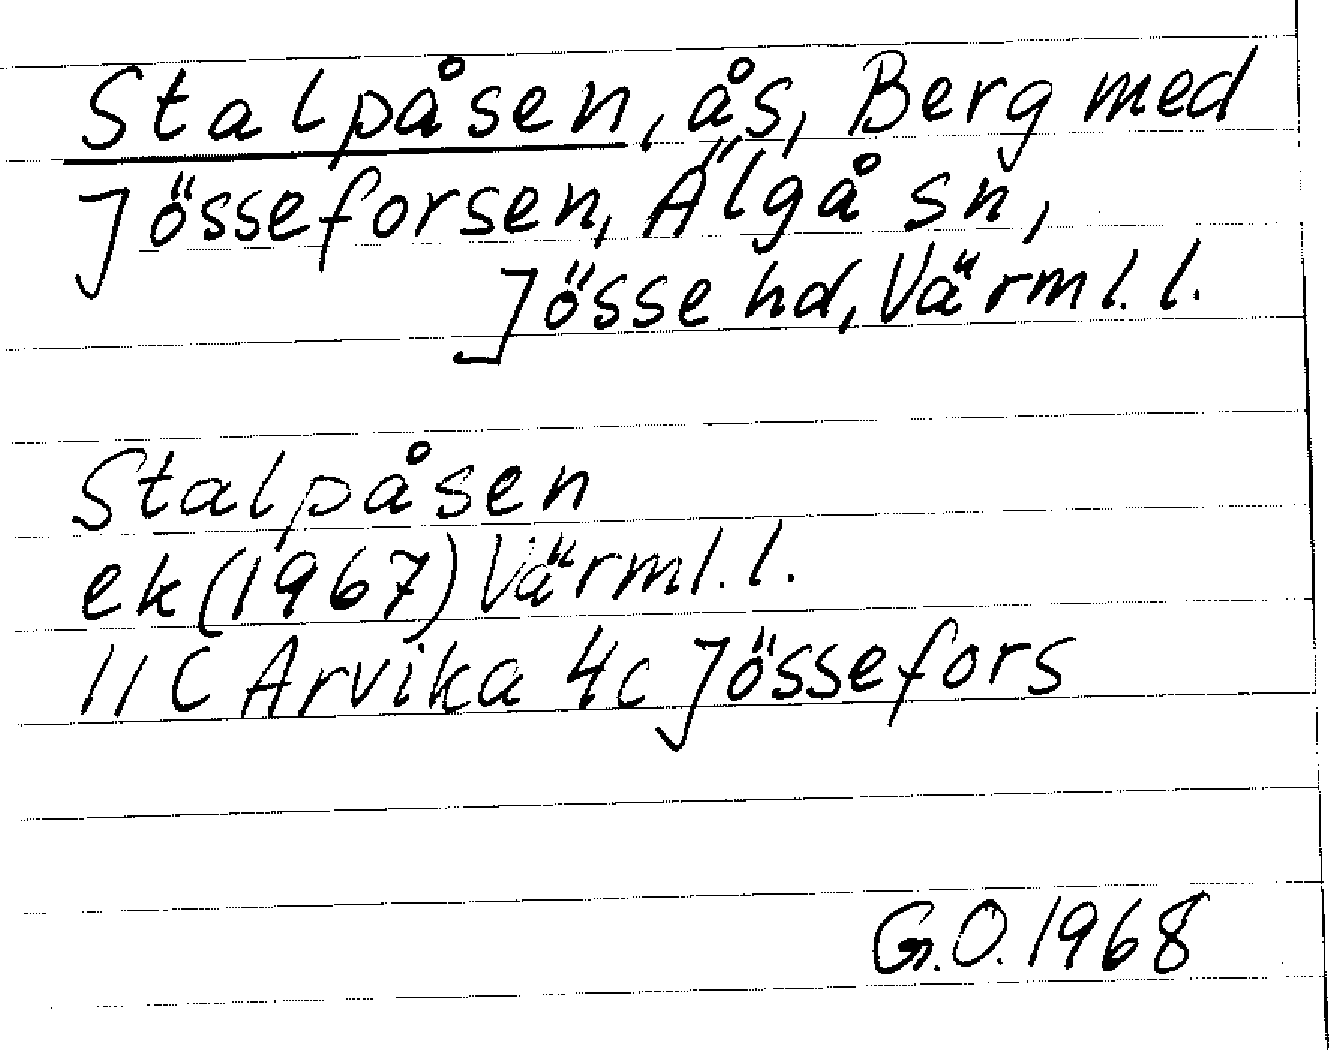 Stalpåsen, ås, Berg med
Jösseforsen, Älgå sn,
Jösse hd, Värml. l.
Stalpåsen
ek (1967) Värml. l.
11 C Arvika 4c Jössefors
G.O. 1968